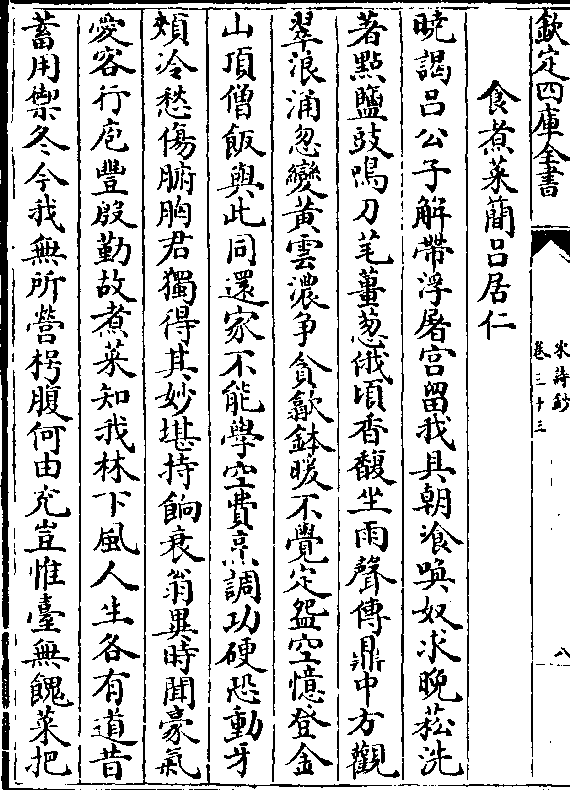 欽定四庫全書
宋詩鈔
卷三十三
八
食煮菜簡吕居仁
曉謁吕公子解帶浮屠宫留我具朝飡喚奴求晚菘洗
著點鹽豉鳴刀芼薑葱俄頃香馥坐雨聲傳鼎中方觀
翠浪涌忽變黄雲濃爭貪歠鉢暖不覺定盌空憶登金
山頂僧飯與此同還家不能學空費烹調功硬恐動牙
頰冷愁傷腑胸君獨得其妙堪持餉衰翁異時聞豪氣
愛客行庖豐殷勤故煮菜知我林下風人生各有道旨
蓄用禦冬今我無所營枵腹何由充豈惟臺無餽菜把